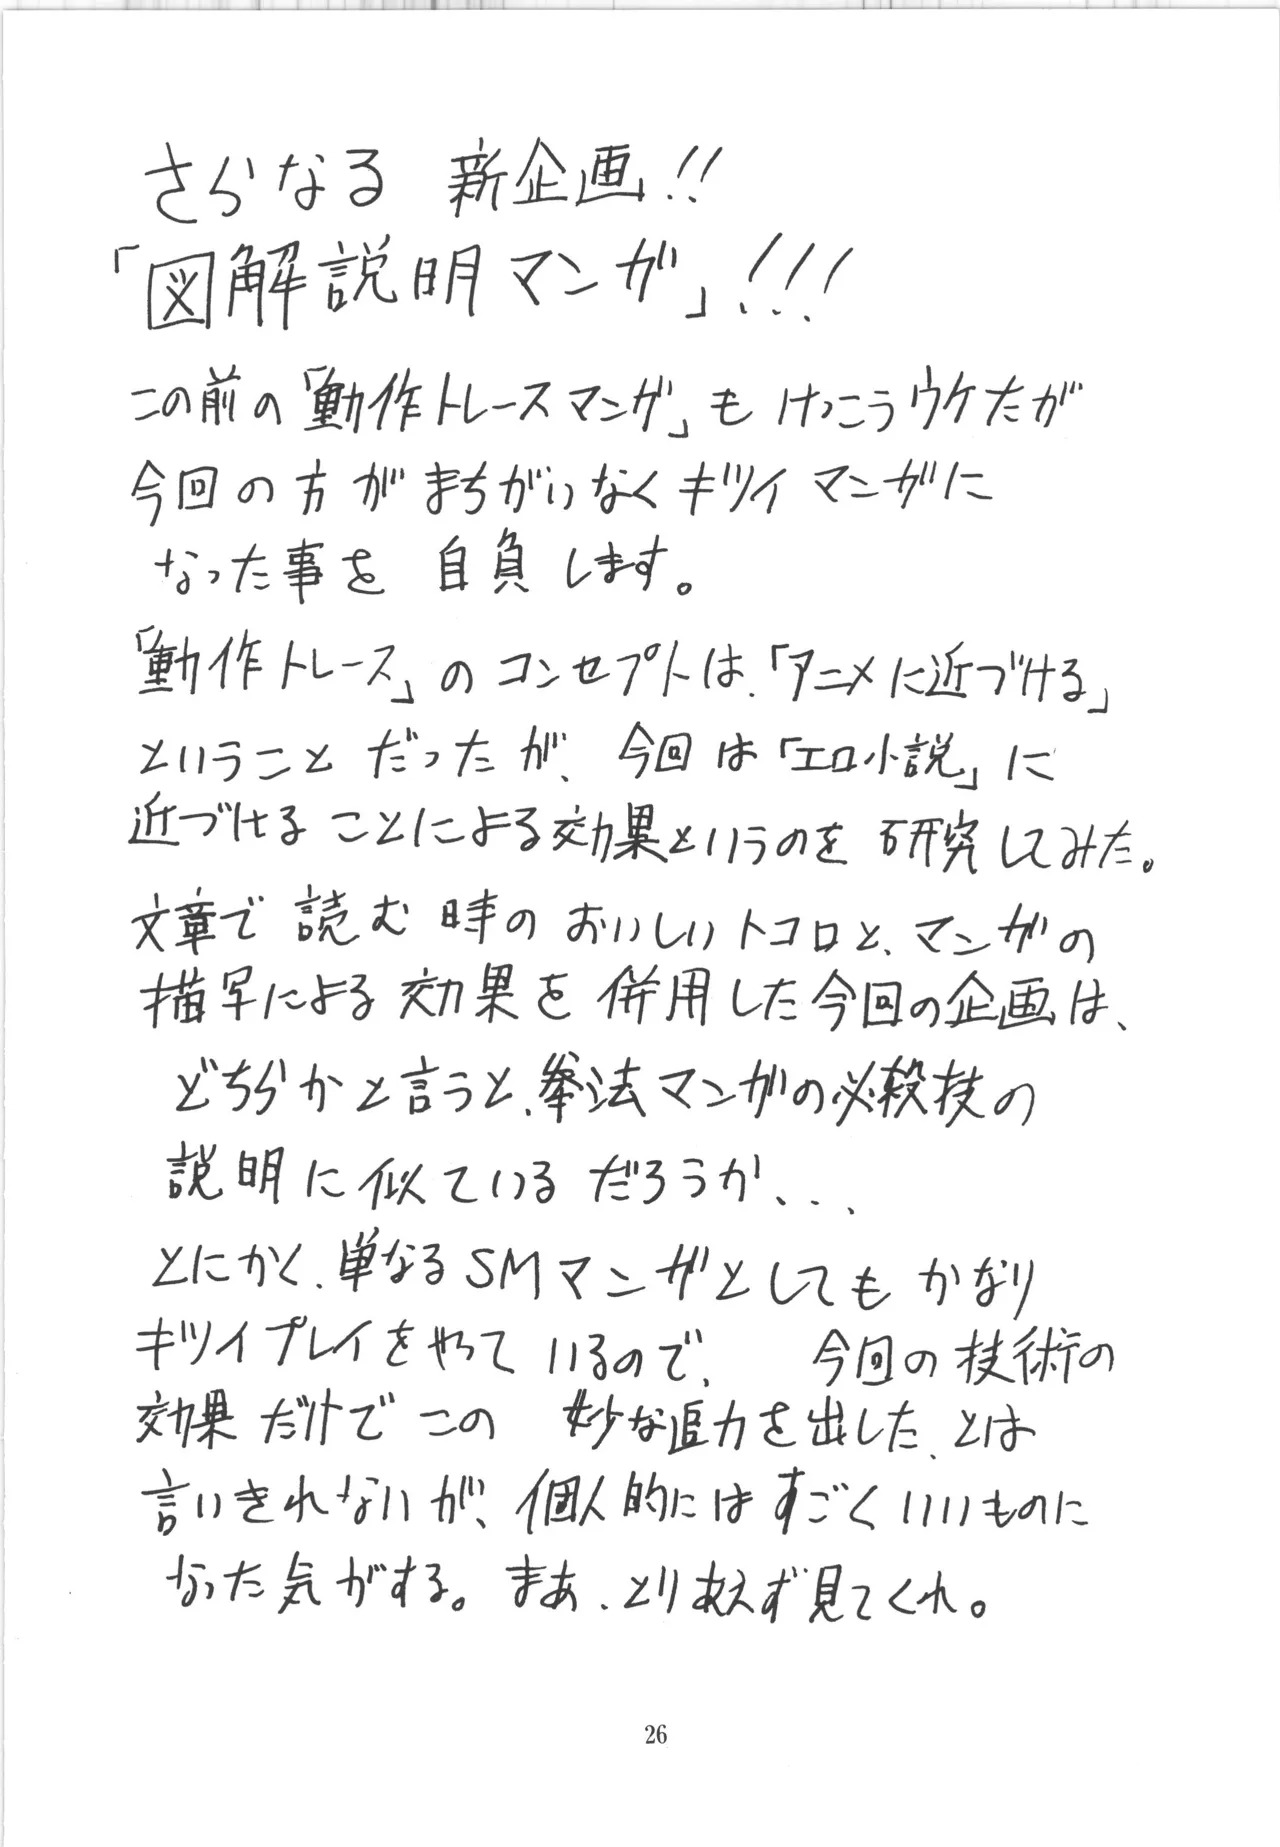 さらなる 新企画!!
「図解説明マンガ」!!!
この前の「動作トレースマンガ」も けっこうウケたが
今回の方がまちがいなくキツイマンガに
なった事を 自負します。
「動作トレース」のコンセプトは、「アニメに近づける」
ということだったが、今回は「エロ小説」に
近づけることによる効果というのを研究してみた。
文章で読む時のおいしいトコロと、マンガの
描写による効果を併用した今回の企画は、
どちらかと言うと、拳法マンガの必殺技の
説明に似ているだろうか、、、
とにかく、単なるSMマンガとしてもかなり
キツイプレイをやっているので、 今回の技術の
効果だけでこの 妙な迫力を出した、とは
言いきれないが、個人的にはすごくいいものに
なった気がする。まあ、とりあえず見てくれ。
26